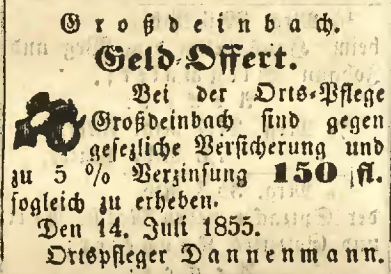 Großdeinbach.
Geld-Offert.
Bei der Orts-Pflege
Großdeinbach sind gegen
gesezliche Versicherung und
zu 5 % Verzinsung 150 fl.
sogleich zu erheben.
Den 14. Juli 1855.
Ortspfleger Dannenmann.